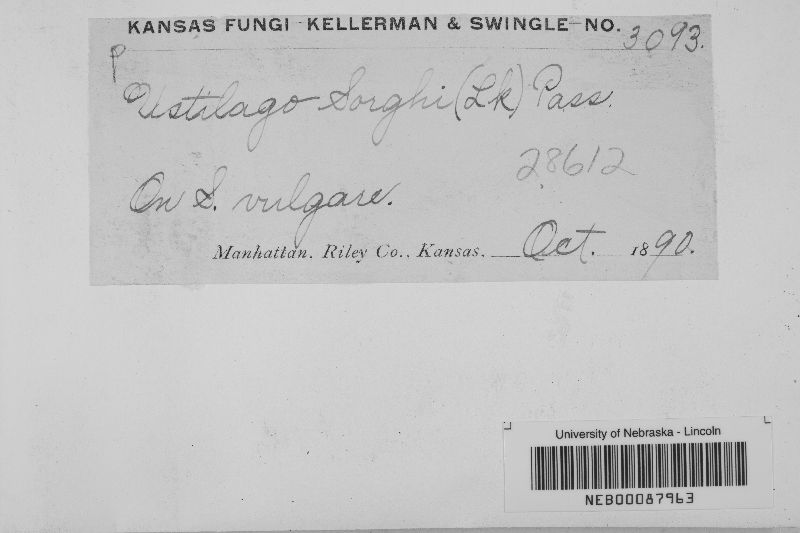 KANSAS FUNGI - KELLERMAN & SWINGLE - NO. 3093.
P
Ustilago Sorghi (Lk) Pass.
28612
On S. vulgare.
Manhattan, Riley Co., Kansas, Oct. 1890.
University of Nebraska - Lincoln
NEB00087963